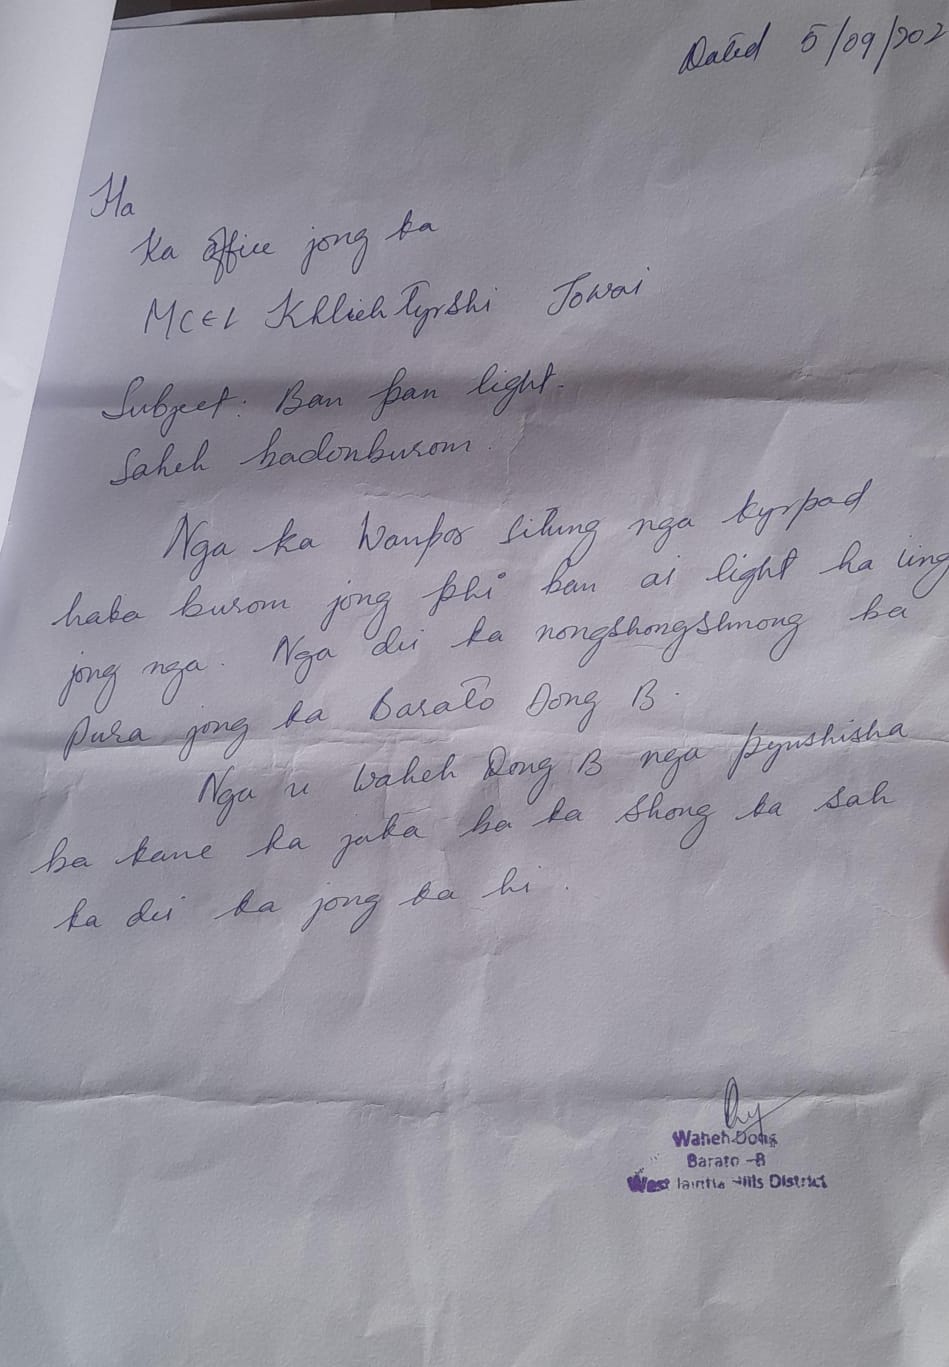 Dated 5/09/202
Ha
Ka office jong ka
MCEL Khliehtyrshi Jowai
Subject: Ban pan light.
Saheh badonburom.
Nga ka Wanpor Situng nga kyrpad
haka burom jong phi ban ai light ha iing
jong nga. Nga dei ka nongshongshnong ba
pura jong ka Barato Dong B.
Nga u Waheh Dong B nga pynshisha
ba kane ka jaka ba ka shong ka sah
ka dei ka jong ka hi.
Waheh Dong
Barato -B
West Jaintia Hills District